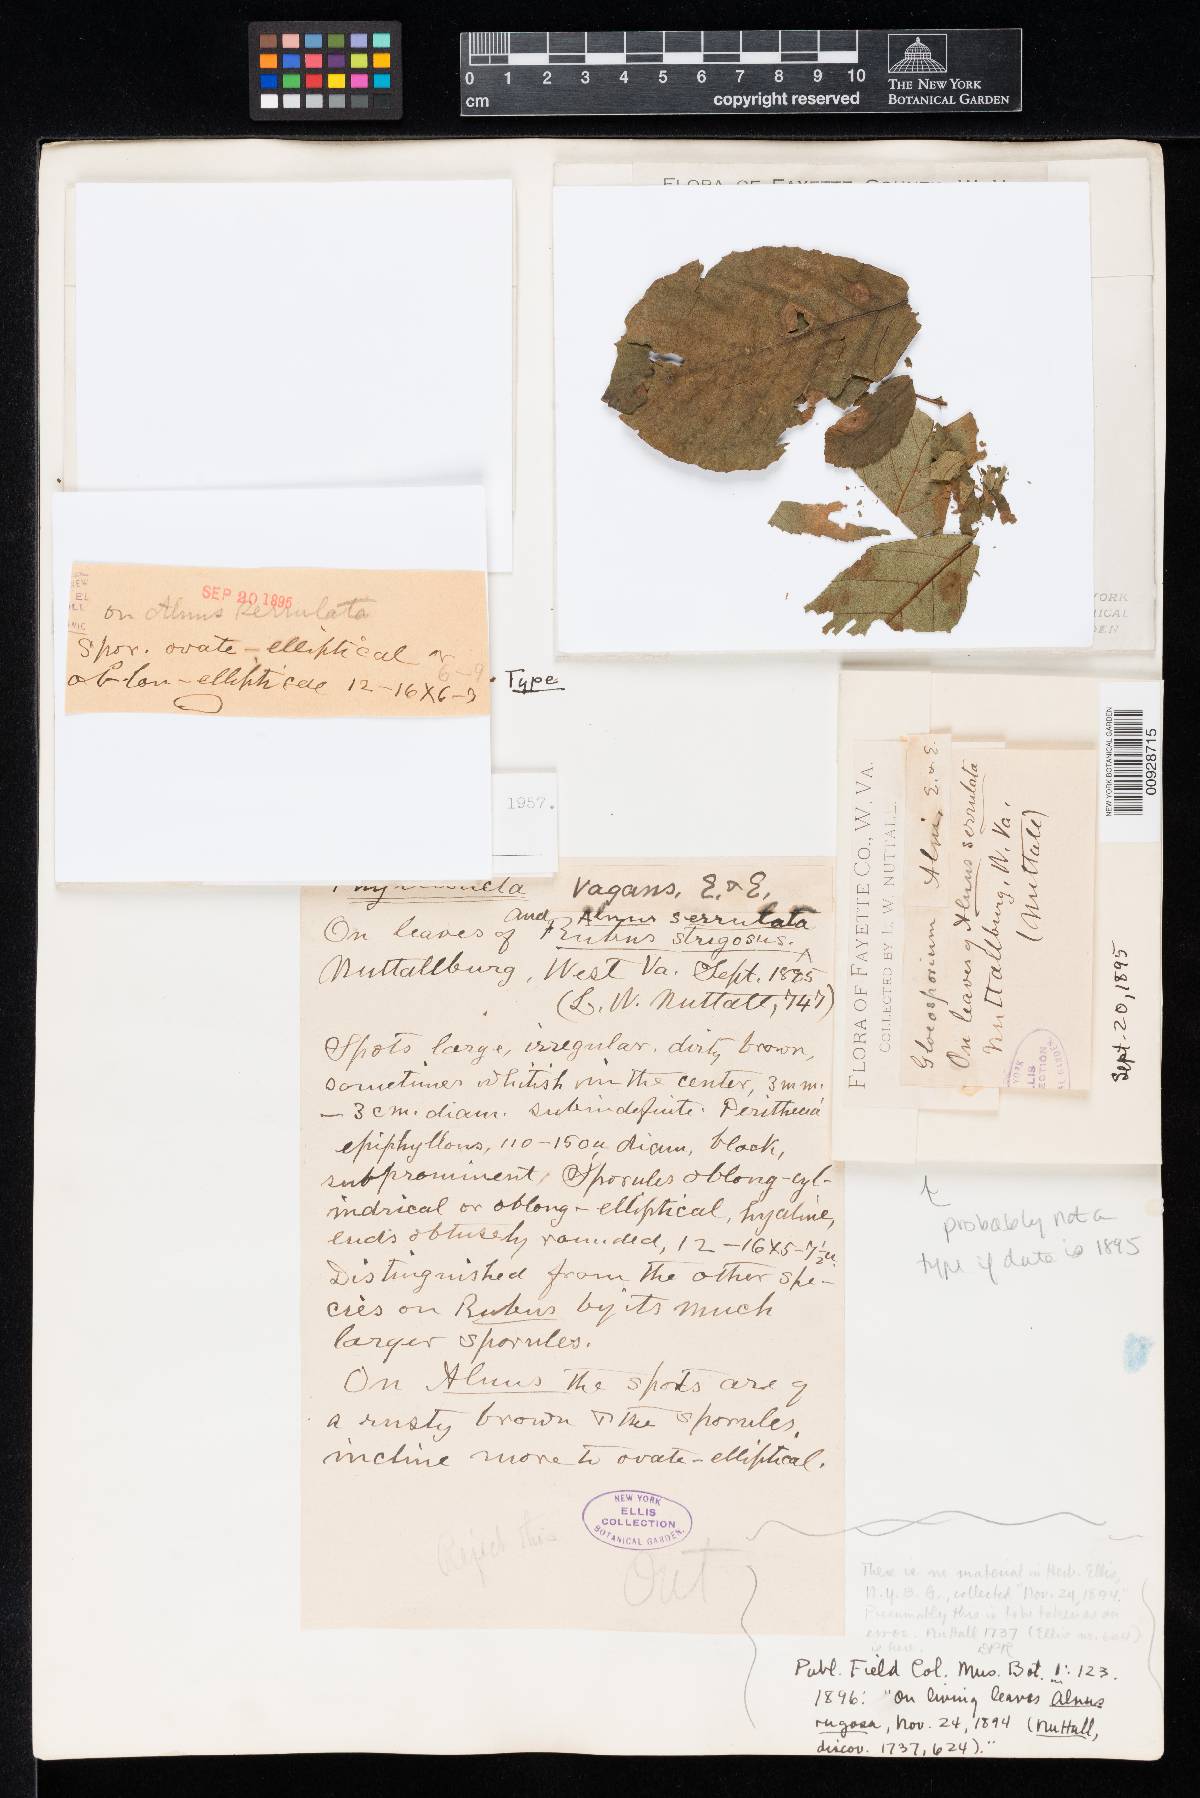 0 1 2 3 4 5 6 7 8 9 10
cm
copyright reserved
THE NEW YORK
BOTANICAL GARDEN
FLORA OF FAYETTE COUNTY, W. VA.
SEP 20 1895
on Alnus serrulata
Spor. ovate-elliptical or
6-9
oblon-elliptical 12-16×6-7
. Type
1957.
YORK
NICAL
DEN
NEW YORK BOTANICAL GARDEN
00928715
FLORA OF FAYETTE CO., W. VA.
COLLECTED BY L. W. NUTTALL.
Gloeosporium Alni, E. & E.
On leaves of Alnus serrulata
Nuttallburg, W. Va.
(Nuttall)
Sept. 20, 1895
vagans, E. & E.
and Alnus serrulata
On leaves of Rubus strigosus.
Nuttallburg, West Va. Sept. 1895
(L. W. Nuttall, 747)
Spots large, irregular. dirty brown,
sometimes whitish in the center, 3 mm.
— 3 cm. diam. subindefinite. Perithecia
epiphyllous, 110-150µ diam, black,
subprominent, Sporules oblong-cyl-
indrical or oblong-elliptical, hyaline,
ends obtusely rounded, 12-16×5-7½µ.
Distinguished from the other spe-
cies on Rubus by its much
larger sporules.
On Alnus the spots are of
a rusty brown & the sporules,
incline more to ovate-elliptical.
NEW YORK
ELLIS
COLLECTION
BOTANICAL GARDEN.
Reject this
Out
probably not a
type if date is 1895
There is no material in Herb. Ellis,
N.Y.B.G., collected "Nov. 24, 1894."
Presumably this is to be taken as an
error. Nuttall 1737 (Ellis no. 624)
is here. DPR
Publ. Field Col. Mus. Bot. 1: 123.
1896: "On living leaves Alnus
rugosa, Nov. 24, 1894 (Nuttall,
discov. 1737, 624)."